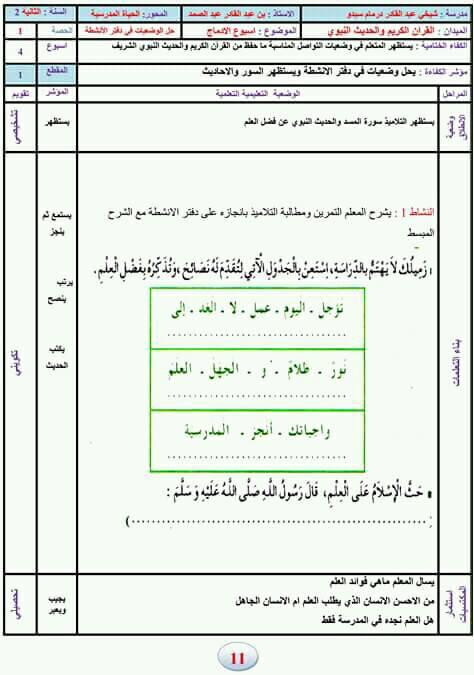 مدرسة : شيخي عبد القادر درمام سيدو
الاستاذ : بن عبد القادر عبد الصمد
المحور: الحياة المدرسية
السنة : الثانية 2
الميدان : القرآن الكريم والحديث النبوي
الموضوع : اسبوع الادماج
حل الوضعيات في دفتر الأنشطة
الحصة
1
الكفاءة الختامية : يستظهر المتعلم في وضعيات التواصل المناسبة ما حفظ من القرآن الكريم والحديث النبوي الشريف
اسبوع
4
مؤشر الكفاءة : يحل وضعيات في دفتر الانشطة ويستظهر السور والاحاديث
المقطع
1
المراحل
الوضعية التعليمية التعلمية
المؤشر
تقويم
وضعية الانطلاق
يستظهر التلاميذ سورة المسد والحديث النبوي عن فضل العلم
يستظهر
تشخيصي
بناء التعلمات
النشاط 1 : يشرح المعلم التمرين ومطالبة التلاميذ بانجازه على دفتر الانشطة مع الشرح
المبسط
زَمِيلُكَ لاَ يَهْتَمُّ بِالدِّرَاسَةِ، اِسْتَعِنْ بِالْجَدْوَلِ الْآتِي لِتُقَدِّمَ لَهُ نَصَائِحَ ،وَتُذَكِّرَهُ بِفَضْلِ الْعِلْمِ.
تؤجل . اليوم . عمل . لا . الغد . إلى
....................................
نور . ظلام . و . الجهل . العلم
....................................
واجباتك . أنجز . المدرسية
....................................
حَثَّ الْإِسْلَامُ عَلَى الْعِلْمِ، قَالَ رَسُولُ اللَّهِ صَلَّى اللَّهُ عَلَيْهِ وَ سَلَّمَ :
(....................................................)
يستمع ثم
ينجز
يرتب
ينصح
يكتب
الحديث
تكويني
استثمار المكتسبات
يسال المعلم ماهي فوائد العلم
من الاحسن الانسان الذي يطلب العلم ام الانسان الجاهل
هل العلم نجده في المدرسة فقط
يجيب
ويعبر
تحصيلي
11